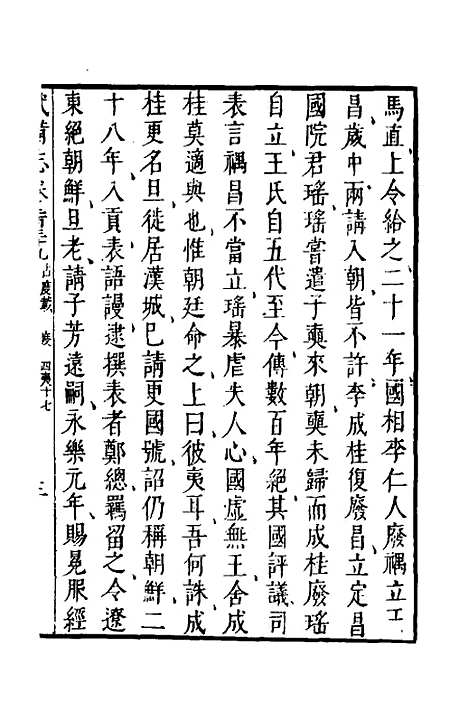 馬直上令給之二十一年國相李仁人廢禑立王
昌歲中兩請入朝皆不許李成桂復廢昌立定昌
國院君瑤瑤嘗遣子奭來朝奭未歸而成桂廢瑤
自立王氏自五代至今傳數百年絕其國評議司
表言禑昌不當立瑤暴虐失人心國虛無王舍成
桂莫適與也惟朝廷命之上曰彼夷耳吾何誅成
桂更名旦徙居漢城已請更國號詔仍稱朝鮮二
十八年入貢表語謾逮撰表者鄭總羈留之令遼
東絕朝鮮旦老請子芳遠嗣永樂元年賜冕服經
武備志卷 占度載 度 四夷十七 三